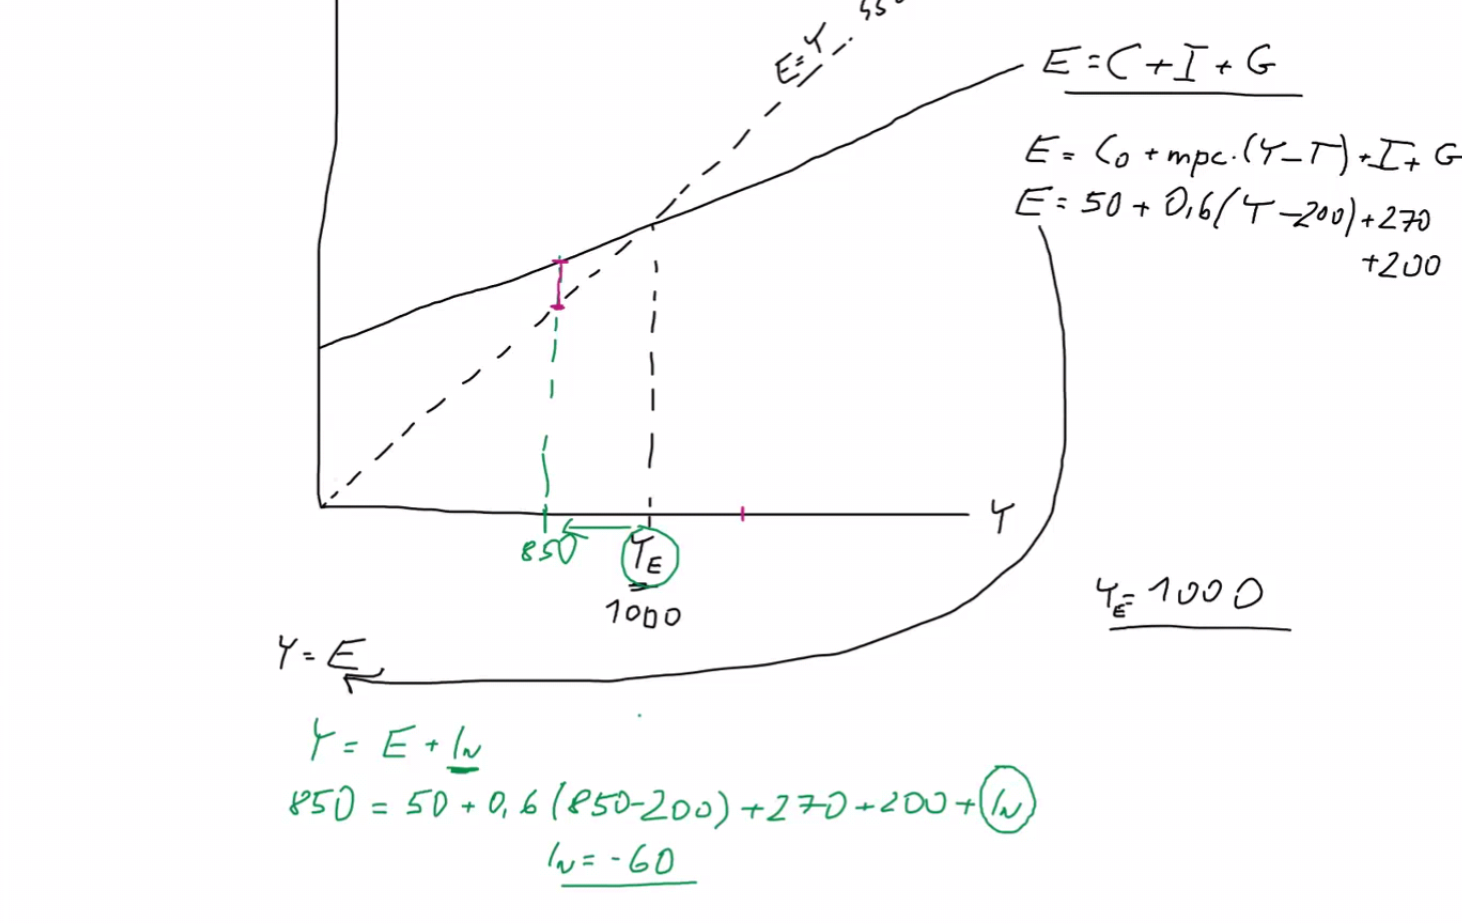 E=Y
E = C + I + G
E = C₀ + mpc·(Y–T) + I + G
E = 50 + 0,6(Y–200)+270
+200
Y
850
Y_E
1000
Y_E = 1000
Y = E
Y = E + IN
850 = 50 + 0,6(850-200)+270+200+IN
IN = -60